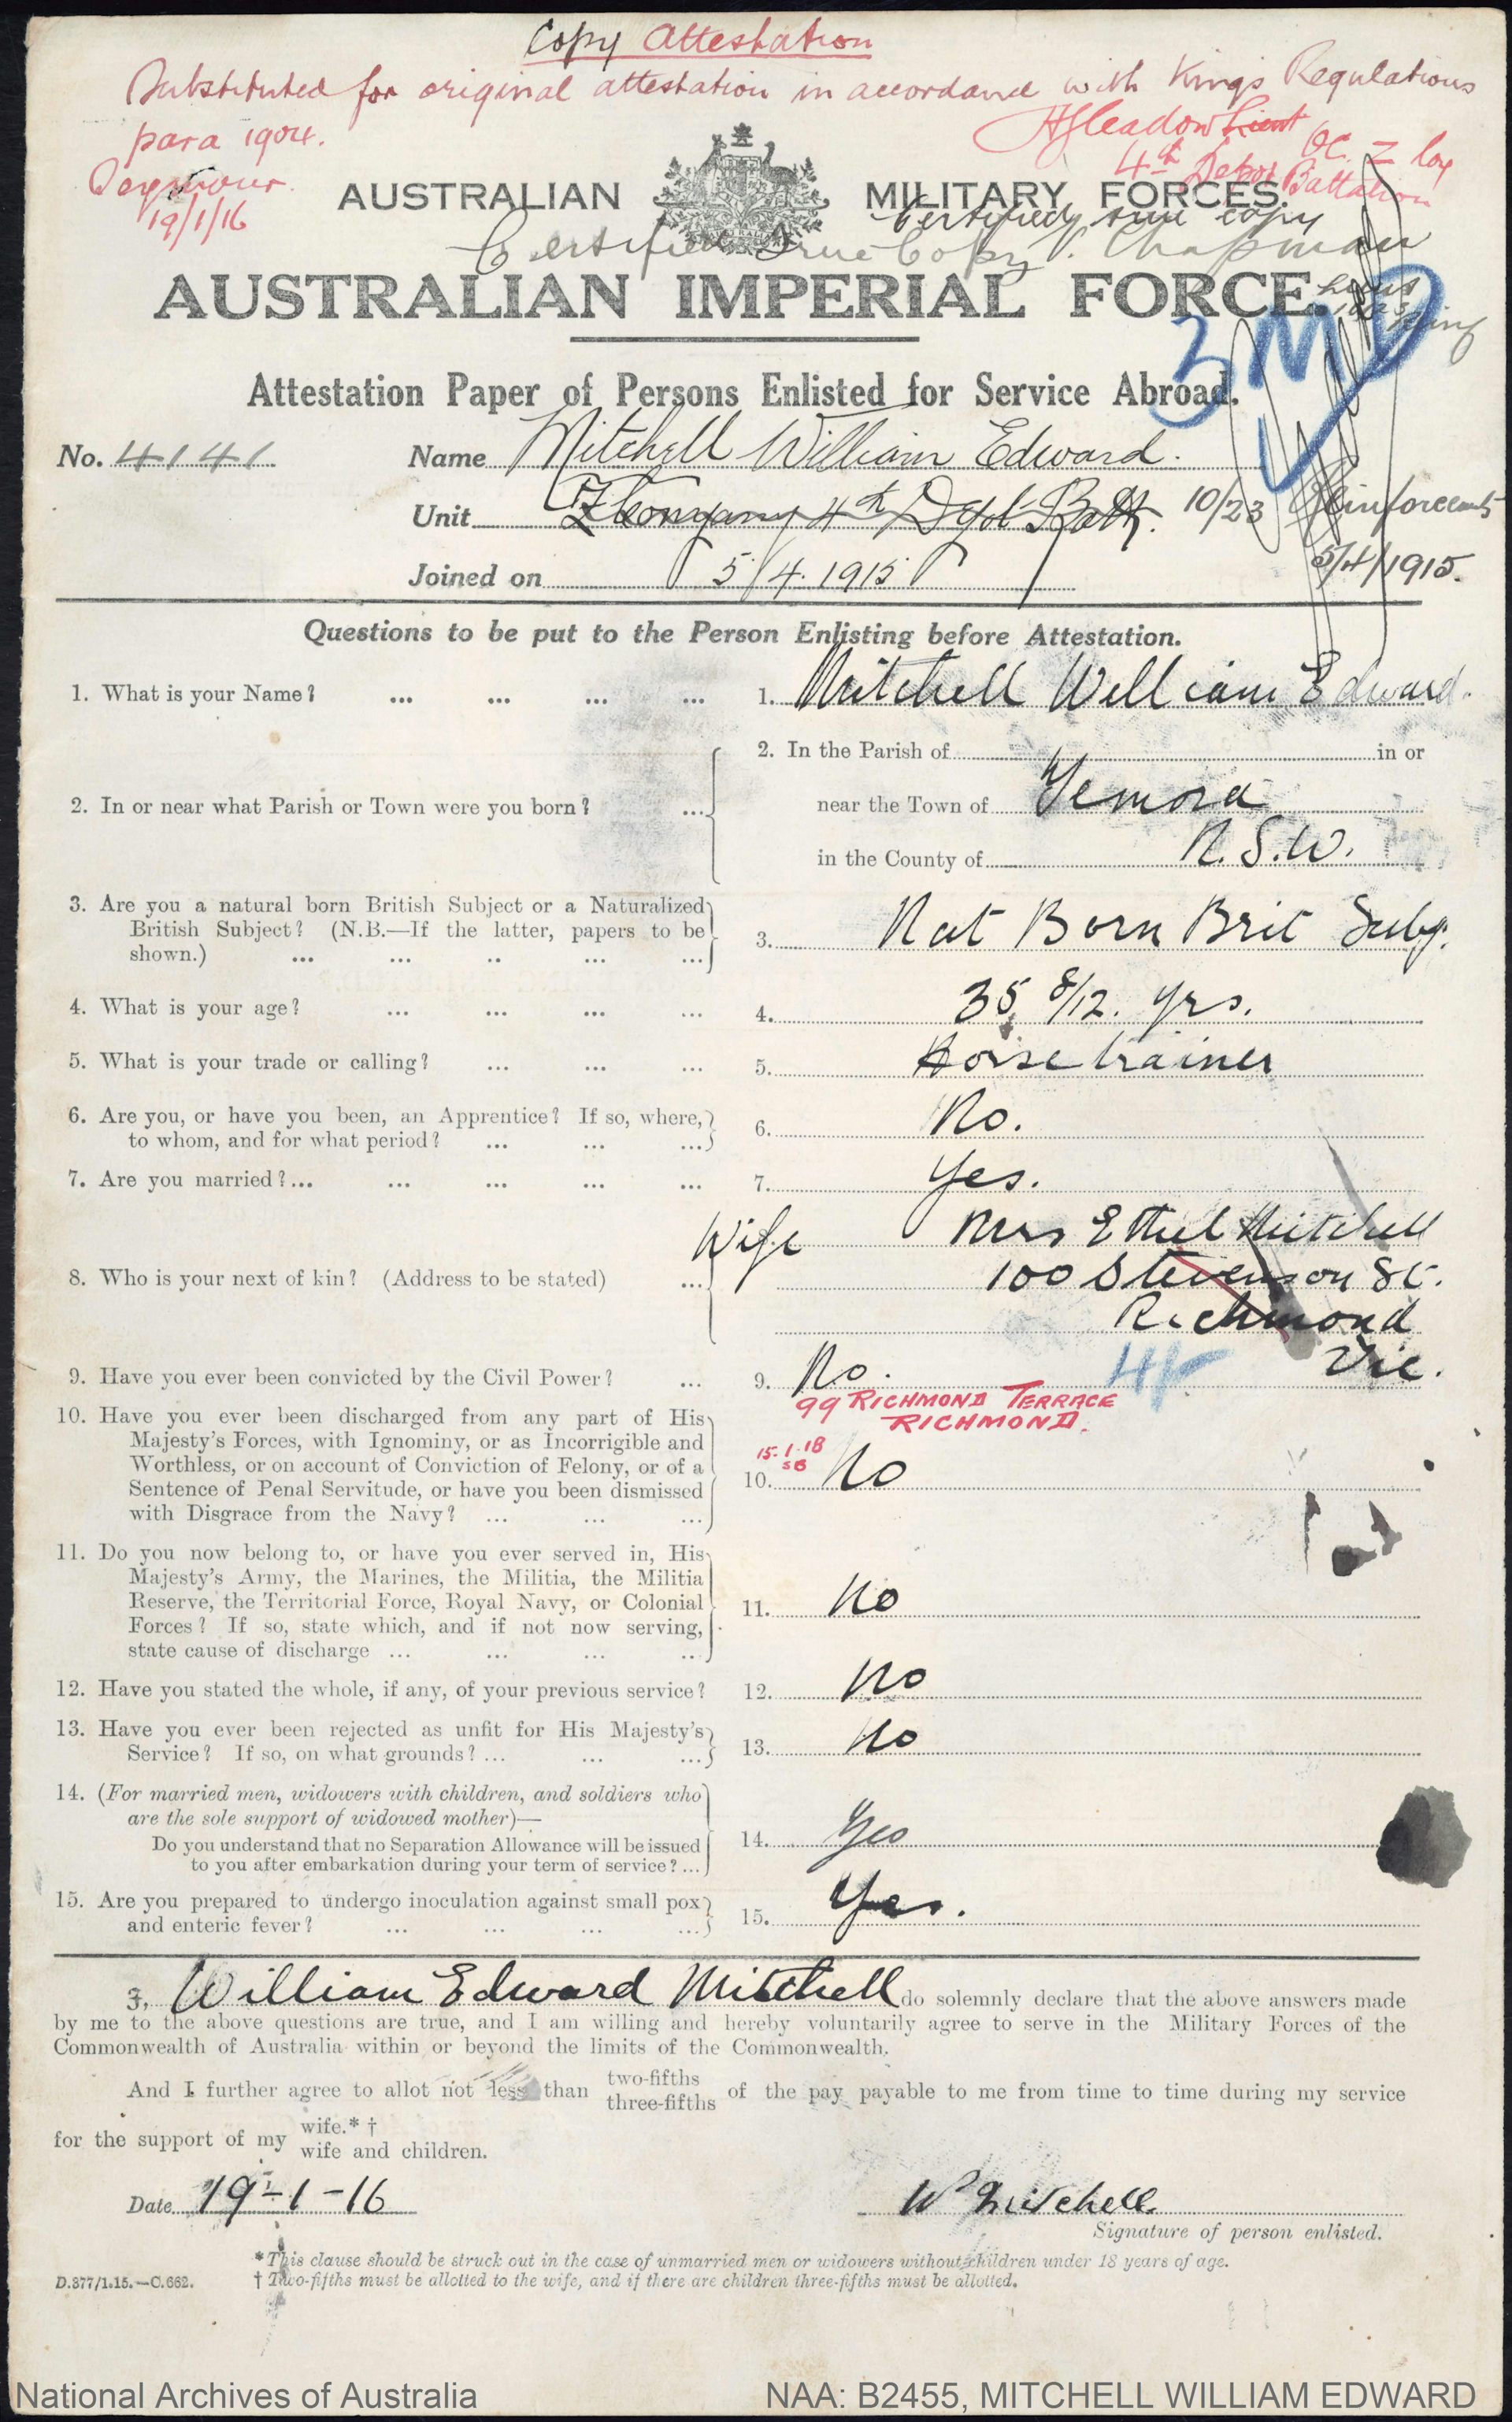 Copy Attestation
Substituted for original attestation in accordance with Kings Regulations
para 1904.
Seymour
19/1/16
Lieut
OC. Z Coy
4th Depot Battalion
AUSTRALIAN MILITARY FORCES.
Certified true copy
Certified True Copy. Chapman
AUSTRALIAN IMPERIAL FORCE.
3 MD
Attestation Paper of Persons Enlisted for Service Abroad.
No. 4141 Name Mitchell William Edward.
Unit Z Company 4th Depot Batt. 10/23 Reinforcements
Joined on 5/4.1915 5/4/1915.
Questions to be put to the Person Enlisting before Attestation.
1. What is your Name? ... ... ... ... 1. Mitchell William Edward.
2. In or near what Parish or Town were you born? ... 2. In the Parish of in or
near the Town of Temora
in the County of N.S.W.
3. Are you a natural born British Subject or a Naturalized
British Subject? (N.B.—If the latter, papers to be
shown.) ... ... .. ... ... 3. Nat Born Brit Subj.
4. What is your age? ... ... ... ... 4. 35 8/12. yrs.
5. What is your trade or calling? ... ... ... 5. Horse trainer
6. Are you, or have you been, an Apprentice? If so, where,
to whom, and for what period? ... ... ... 6. No.
7. Are you married?... ... ... ... ... 7. Yes.
8. Who is your next of kin? (Address to be stated) ... Wife Mrs Ethel Mitchell
100 Stevenson St.
Richmond
Vic.
9. Have you ever been convicted by the Civil Power? ... 9. No.
99 RICHMOND TERRACE
RICHMOND.
15.1.18
SB
10. Have you ever been discharged from any part of His
Majesty's Forces, with Ignominy, or as Incorrigible and
Worthless, or on account of Conviction of Felony, or of a
Sentence of Penal Servitude, or have you been dismissed
with Disgrace from the Navy? ... ... ... 10. No
11. Do you now belong to, or have you ever served in, His
Majesty's Army, the Marines, the Militia, the Militia
Reserve, the Territorial Force, Royal Navy, or Colonial
Forces? If so, state which, and if not now serving,
state cause of discharge ... ... ... .. 11. No
12. Have you stated the whole, if any, of your previous service? 12. No
13. Have you ever been rejected as unfit for His Majesty's
Service? If so, on what grounds? ... ... ... 13. No
14. (For married men, widowers with children, and soldiers who
are the sole support of widowed mother)—
Do you understand that no Separation Allowance will be issued
to you after embarkation during your term of service? ... 14. Yes
15. Are you prepared to undergo inoculation against small pox
and enteric fever? ... ... ... ... 15. Yes.
I, William Edward Mitchell do solemnly declare that the above answers made
by me to the above questions are true, and I am willing and hereby voluntarily agree to serve in the Military Forces of the
Commonwealth of Australia within or beyond the limits of the Commonwealth.
And I further agree to allot not less than two-fifths three-fifths of the pay payable to me from time to time during my service
for the support of my wife.* † wife and children.
Date 19-1-16 W Mitchell
Signature of person enlisted.
*This clause should be struck out in the case of unmarried men or widowers without children under 18 years of age.
D.377/1.15.—C.662. † Two-fifths must be allotted to the wife, and if there are children three-fifths must be allotted.
National Archives of Australia NAA: B2455, MITCHELL WILLIAM EDWARD